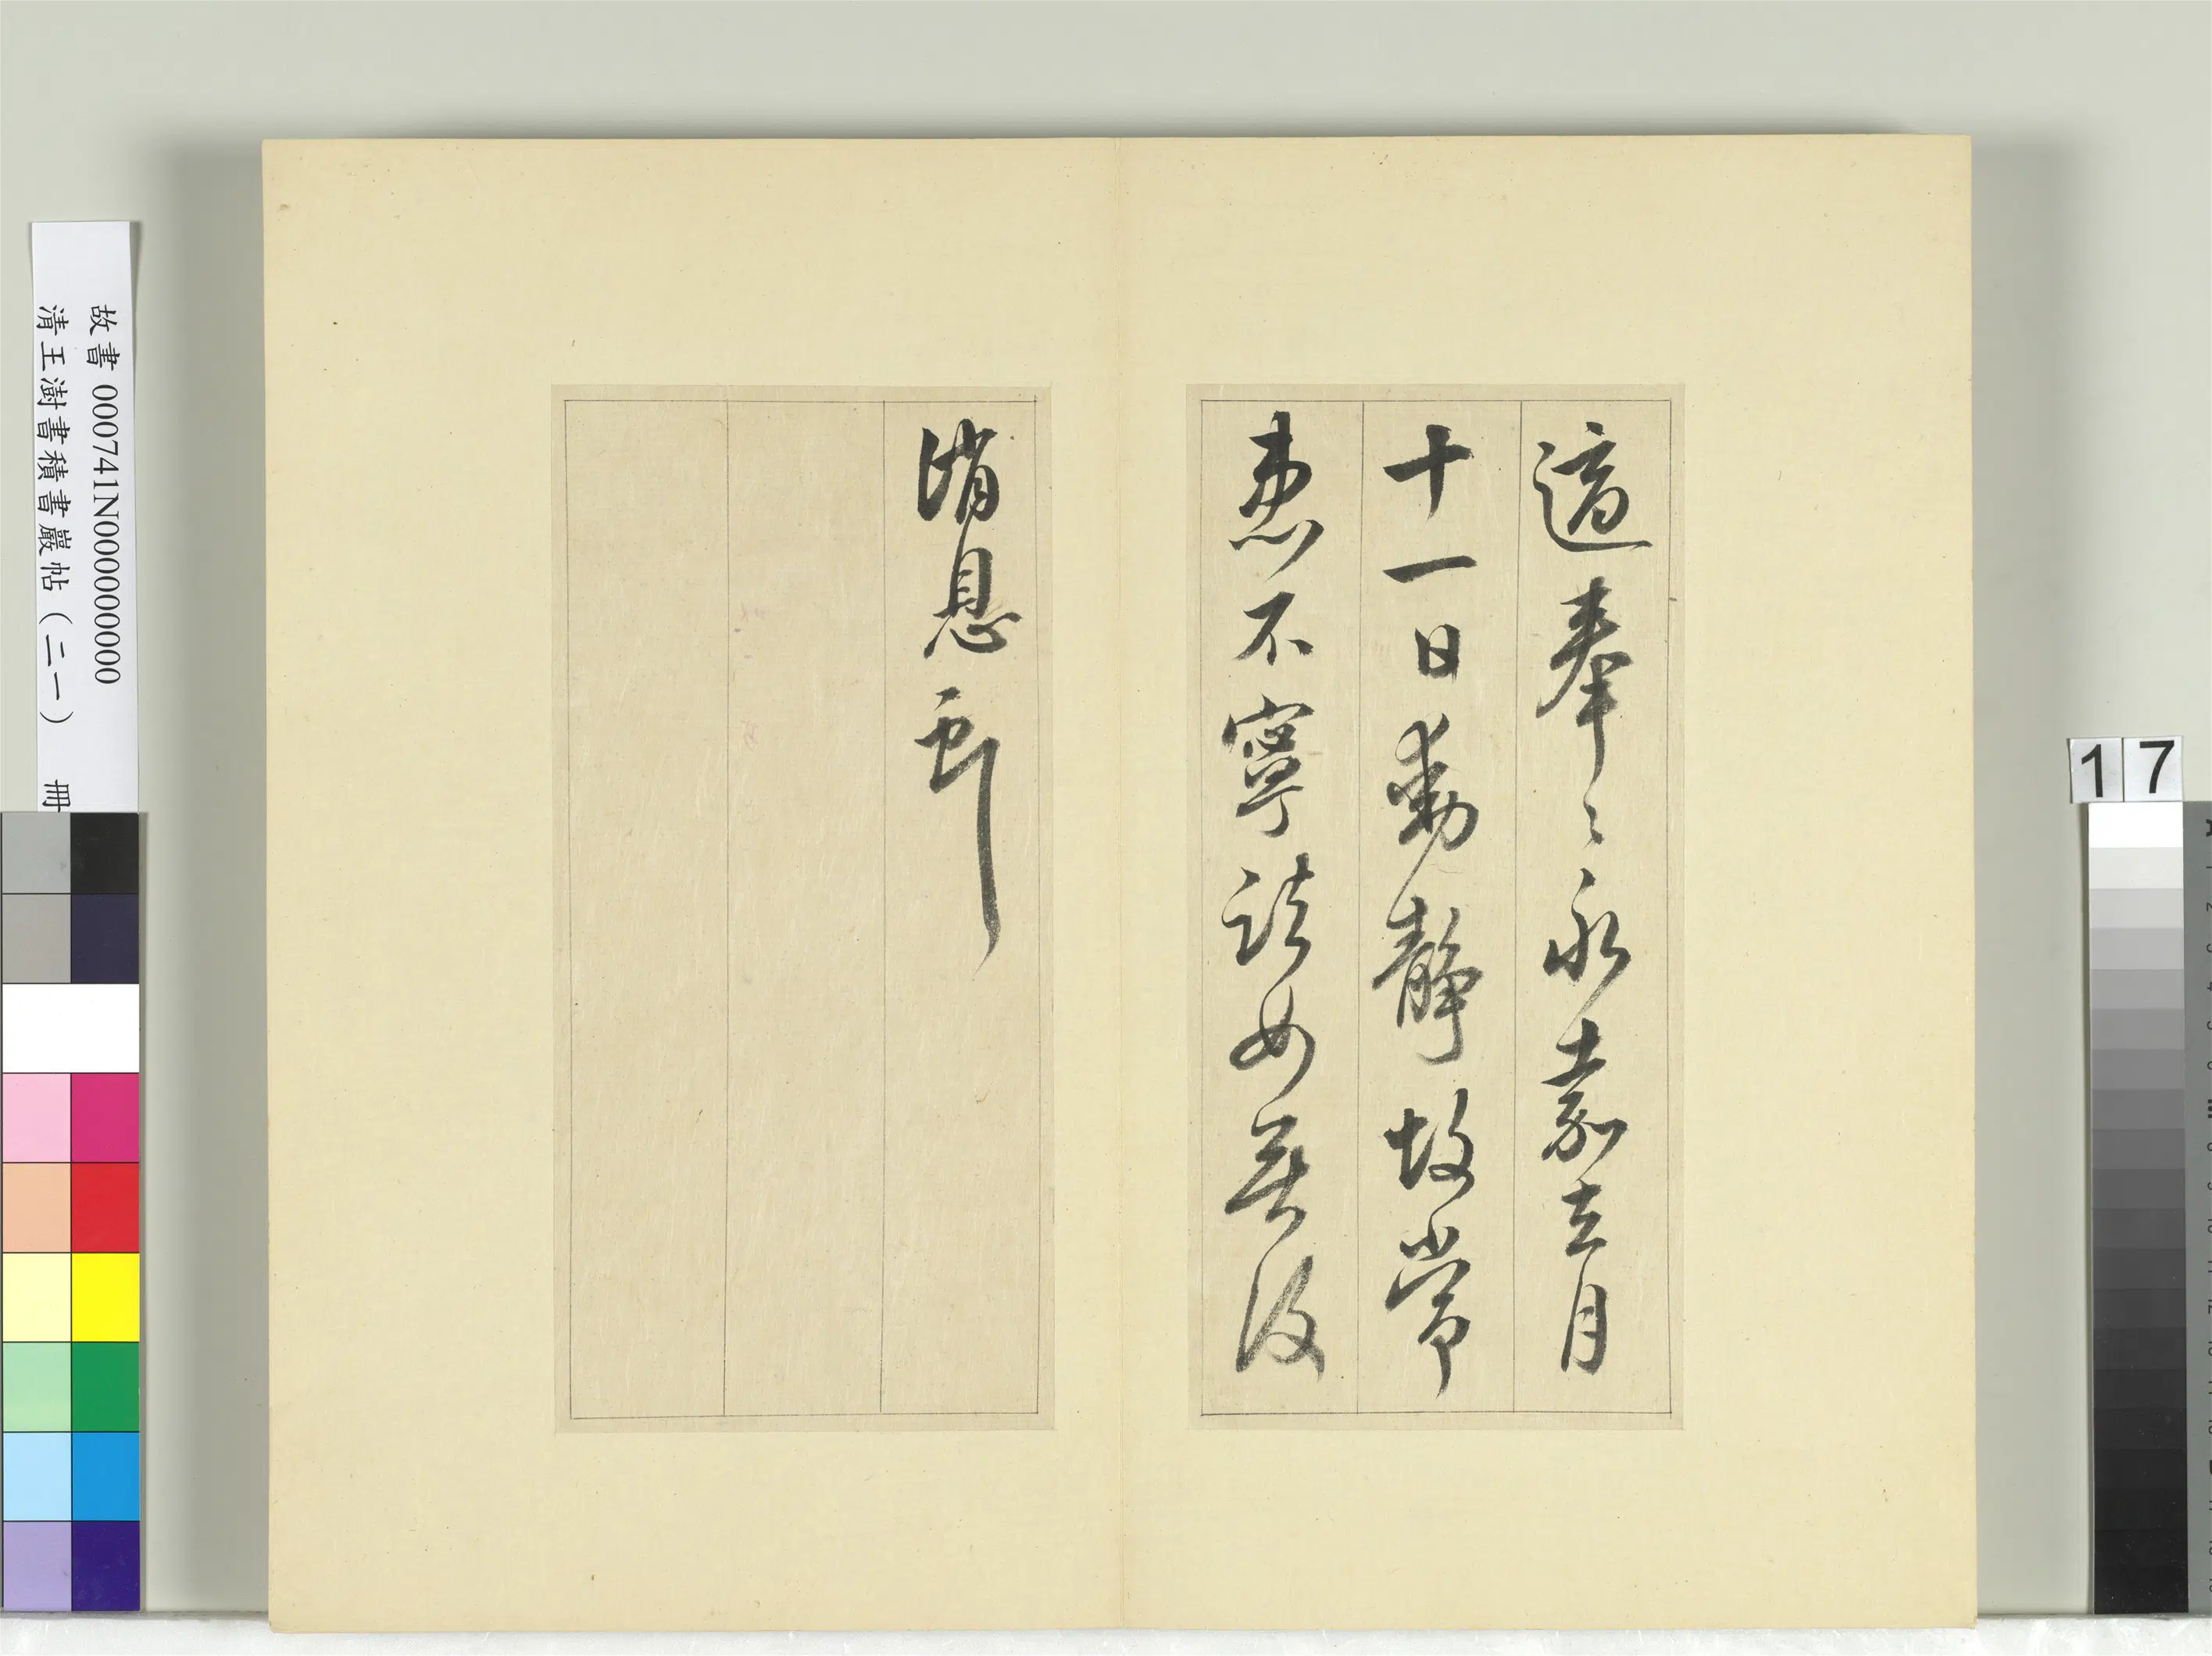 適奉〻永嘉去月
十一日動靜故常
患不寧諸女無復
消息
故書 000741N000000000
清王澍書積書巖帖（二一） 冊
17